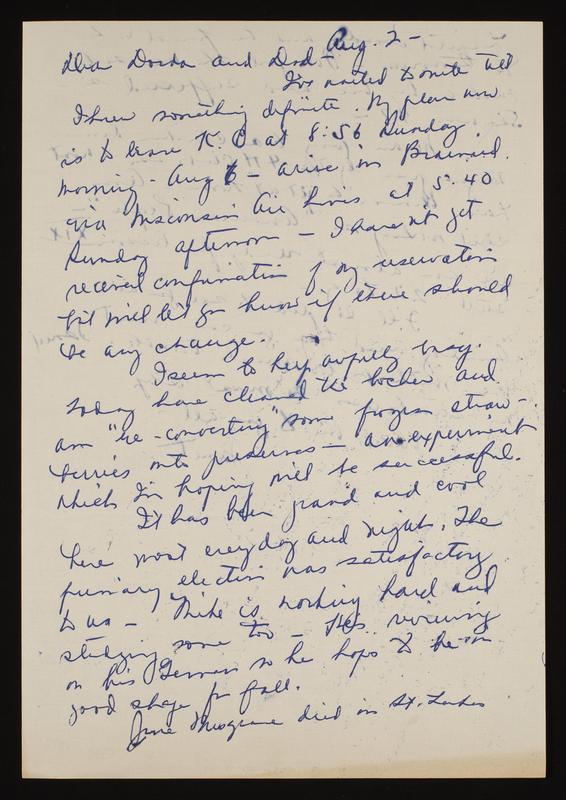 Aug. 2 -
Dear Dorda and Dad -
I've waited to write till
I knew something definite. My plan now
is to leave K.C at 8:56 Sunday
morning - Aug 6 - arrive in Brainerd
via Wisconsin Air Lines at 5:40
Sunday afternoon - I haven't yet
received confirmation of my reservation
but will let you know if there should
be any change.
I seem to keep awfully busy.
Today have cleaned the locker and
am "re-converting" some frozen straw-
berries into preserves - an experiment
which I'm hoping will be successful.
It has been grand and cool
here most every day and night. The
primary election was satisfactory
to us - Mike is working hard and
studying some too - He's reviewing
on his German so he hopes to be in
good shape for fall.
June Musgrave died in St. Lukes